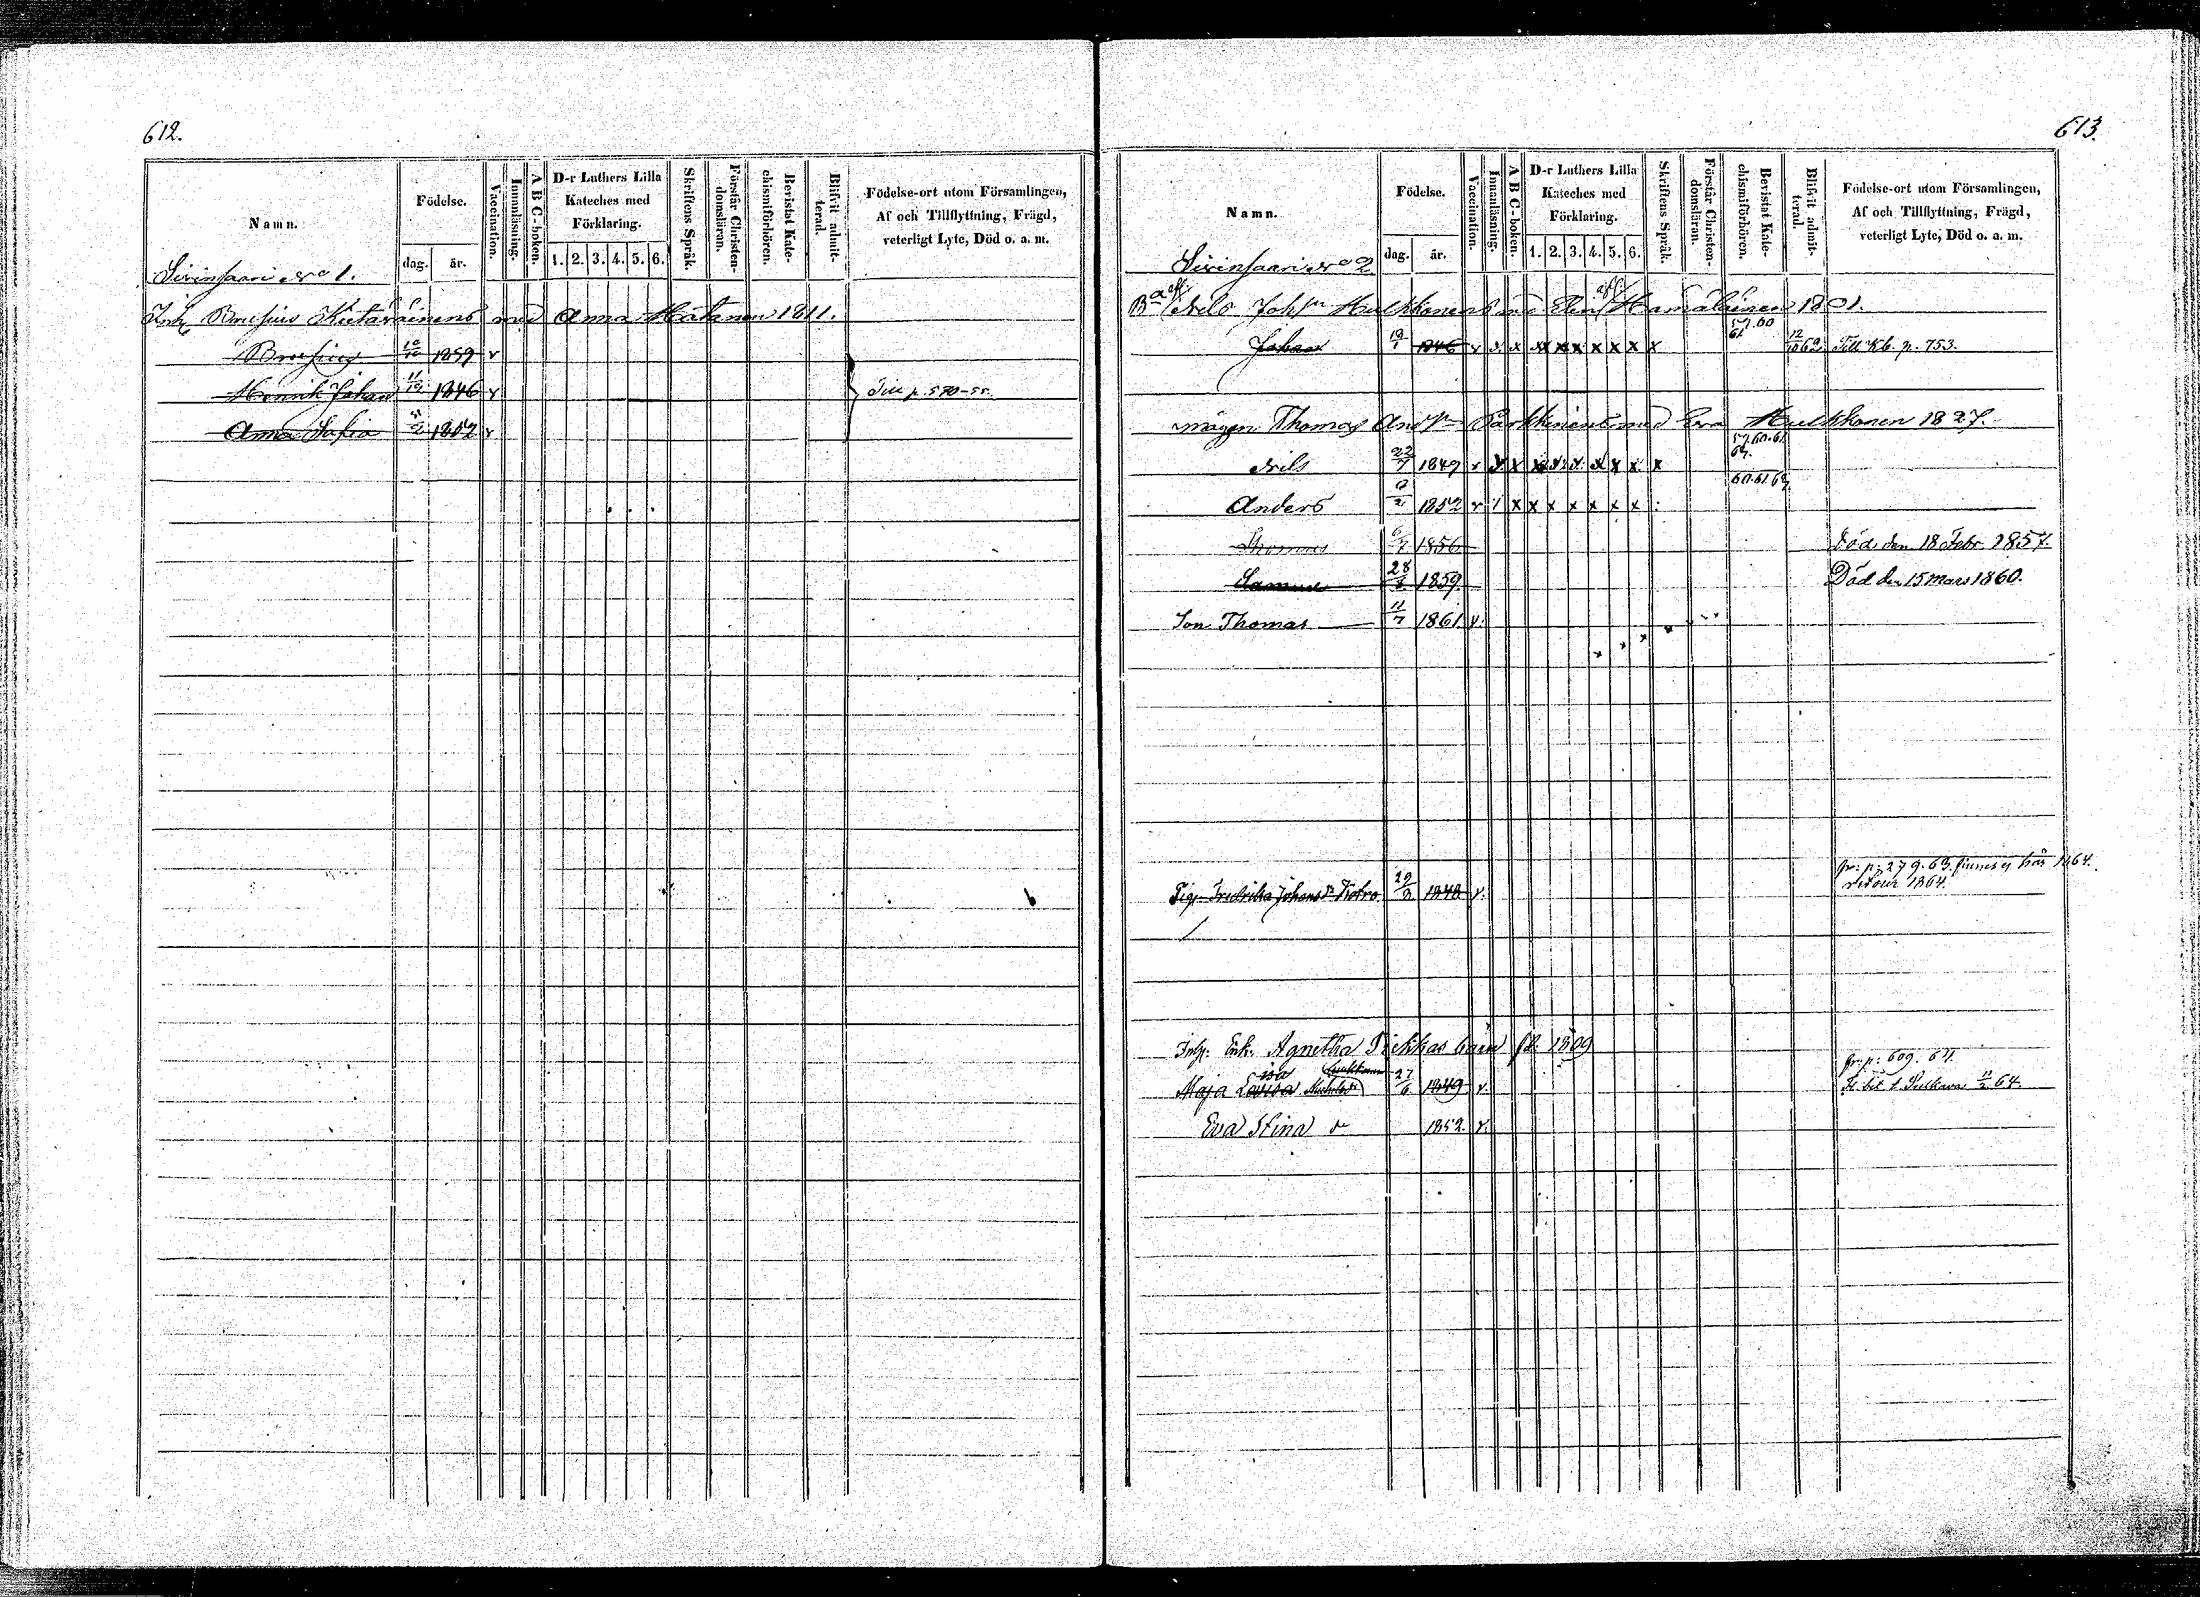 612.
Namn.
Födelse.
dag.
år.
Vaccination.
Innanläsning.
A B C-boken.
D-r Luthers Lilla
Kateches med
Förklaring.
1. 2. 3. 4. 5. 6.
Skriftens Språk.
Förstår Christen-
domsläran.
Bevistat Kate-
chismiförhören.
Blifvit admit-
terad.
Födelse-ort utom Församlingen,
Af och Tillflyttning, Frägd,
veterligt Lyte, Död o. a. m.
Sirinsaari No 1.
Kietäväinens med Anna 1811.
10/10 v
Henrik Johan 11/12 1846 v
Till p. 570-
Anna Sofia 1852 v
613.
Namn.
Födelse.
dag.
år.
Vaccination.
Innanläsning.
A B C-boken.
D-r Luthers Lilla
Kateches med
Förklaring.
1. 2. 3. 4. 5. 6.
Skriftens Språk.
Förstår Christen-
domsläran.
Bevistat Kate-
chismiförhören.
Blifvit admit-
terad.
Födelse-ort utom Församlingen,
Af och Tillflyttning, Frägd,
veterligt Lyte, Död o. a. m.
Sirinsaari No 2
Nils Hulkkonens Elin Hämäläinen 1801.
Johan 1846 v x x x x x x x x 12/10 62 Till Kb. p. 753.
mågen Thomas Parkkinens med Eva Hulkkonen 1827.
Nils 22/7 1849 v x x x x x x
Anders 1852 v x x x x x x x 60.61.62
Thomas 6/7 1856 Död den 18 Febr. 1857.
Samuel 28/8 1859 Död den 15 Mars 1860.
Son Thomas 11/7 1861 v.
Pig. Fredrika Johansdr 1848 v.
fr. p. 279. 63. finnes ej här 1864.
retour 1864.
Inh: Enk. Agnetha Pekkas barn fd. 1809
Maja Lovisa 27/6 1849 v.
fr. p: 609. 61.
Fl. bet. t. Sulkava 11/2 64.
Eva Stina dr 1852. v.